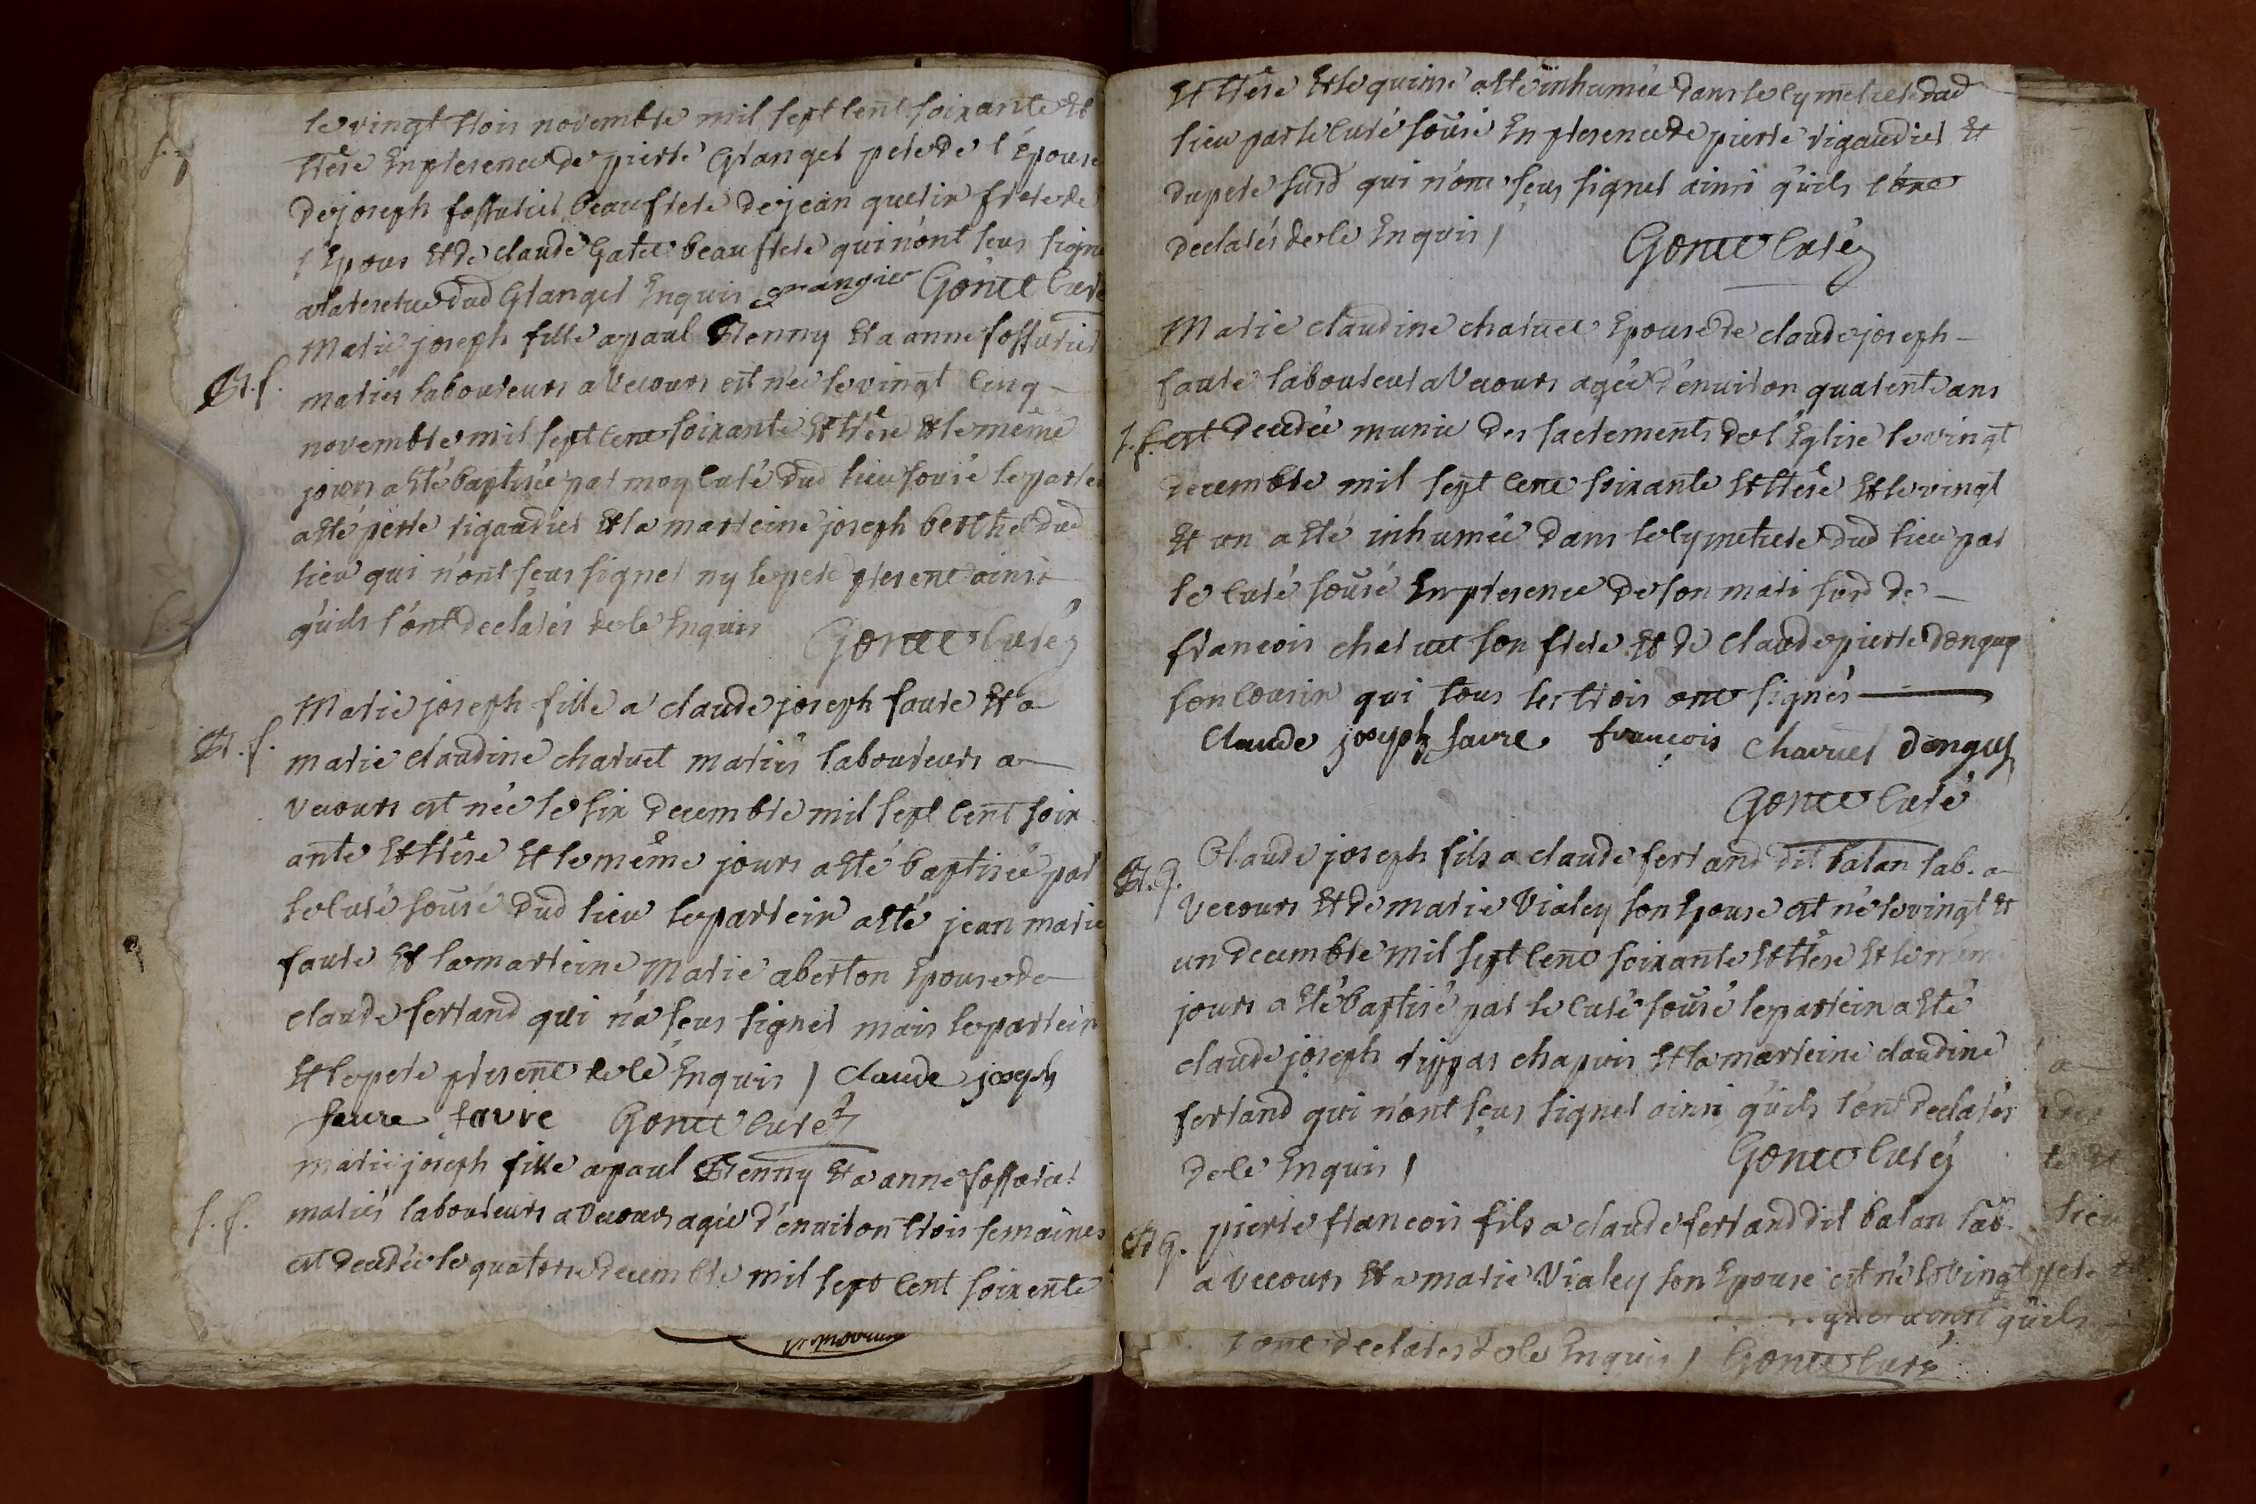 le vingt trois novembre mil sept cent soixante Et
trese En presence de pierre Granger pere de l'épouse
de joseph fossurier beaufrere de jean guerin frere de
l'Epoux Et de claude Gatee beaufrere qui n'ont seus signe
a la reserve dud Granger Enquis grangier Gonet Curé
Marie joseph fille a paul Brenny Et a anne fossurier
B. f.
mariés laboureurs a Vecours est née le vingt cinq
novembre mil sept cent soixante Et trese Et le même
jours a Eté baptisée par moy Curé dud lieu sousé le parrei
a Eté pierre rigaudier Et la marreine joseph berthet dud
lieu qui n'ont seus signer ny le pere present ainsi
qu'ils l'ont declarés de ce Enquis Gonet Curé
Marie joseph fille a claude joseph faure Et a
B. f.
marie claudine charuet mariés laboureurs a
Vecours est née le six decembre mil sept cent soix
ante Et trese Et le même jours a Eté baptisée par
le Curé sousé dud lieu le parrein a Eté jean marie
faure Et la marreine Marie aberton Epouse de
claude ferrand qui n'a seus signer mais le parrein
Et le pere present de ce Enquis / Claude joseph
faure favre Gonet Curé
marie joseph fille a paul Brenny Et a anne fossurier
S. f.
mariés laboureurs a Vecours agée d'enuiron trois semaines
est decedée le quatorse decembre mil sept cent soixente
Et trese Et le quinse a Eté inhumée dans le Cymetiere dud
lieu par le Curé sousé En presence de pierre rigaudier Et
du pere susd qui n'ont seus signer ainsi qu'ils l'ont
declarés de ce Enquis / Gonet Curé
Marie claudine charuet Epouse de claude joseph
faure laboureur a Vecours agée d'enuiron quarente ans
S. f. est decedée munie des sacrements de l'Eglise le vingt
decembre mil sept cent soixante Et trese Et le vingt
Et un a Eté inhumée dans le Cymetiere dud lieu par
le Curé sousé En presence de son mari susd de
francois charuet son frere Et de Claude pierre donguy
son Cousin qui tous les trois ont signés
Claude joseph faure françois Charuet Donguy
Gonet Curé
Claude joseph fils a claude ferrand dit balan lab. a
B. g.
Vecours Et de marie Vialey son Epouse est né le vingt Et
un decembre mil sept cent soixante Et trese Et le même
jours a Eté baptisé par le Curé sousé le parrein a Eté
claude joseph tippas chapuis Et la marreine claudine
ferrand qui n'ont seus signer ainsi qu'ils l'ont declarés
de ce Enquis / Gonet Curé
pierre francois fils a claude ferrand dit balan lab.
B. g.
a Vecours Et a marie Vialey son Epouse est né le Vingt
ainsi qu'ils
l'ont declarés de ce Enquis / Gonet Curé